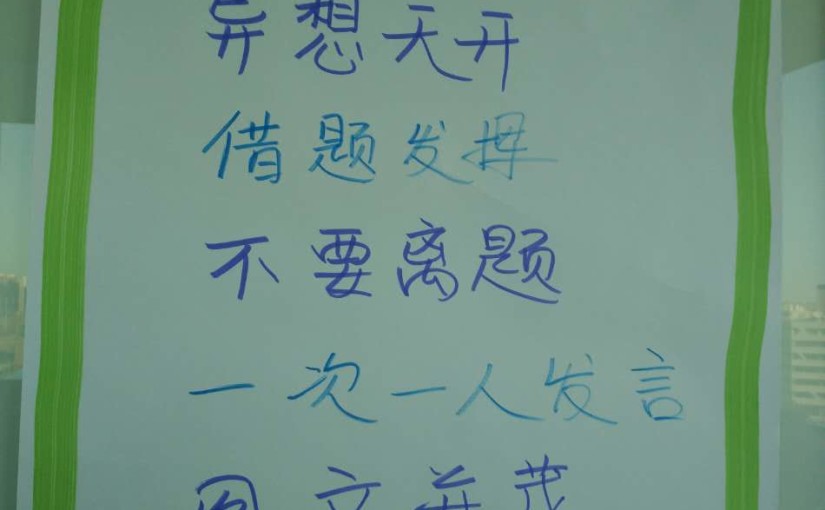 异想天开
借题发挥
不要离题
一次一人发言
图文并茂